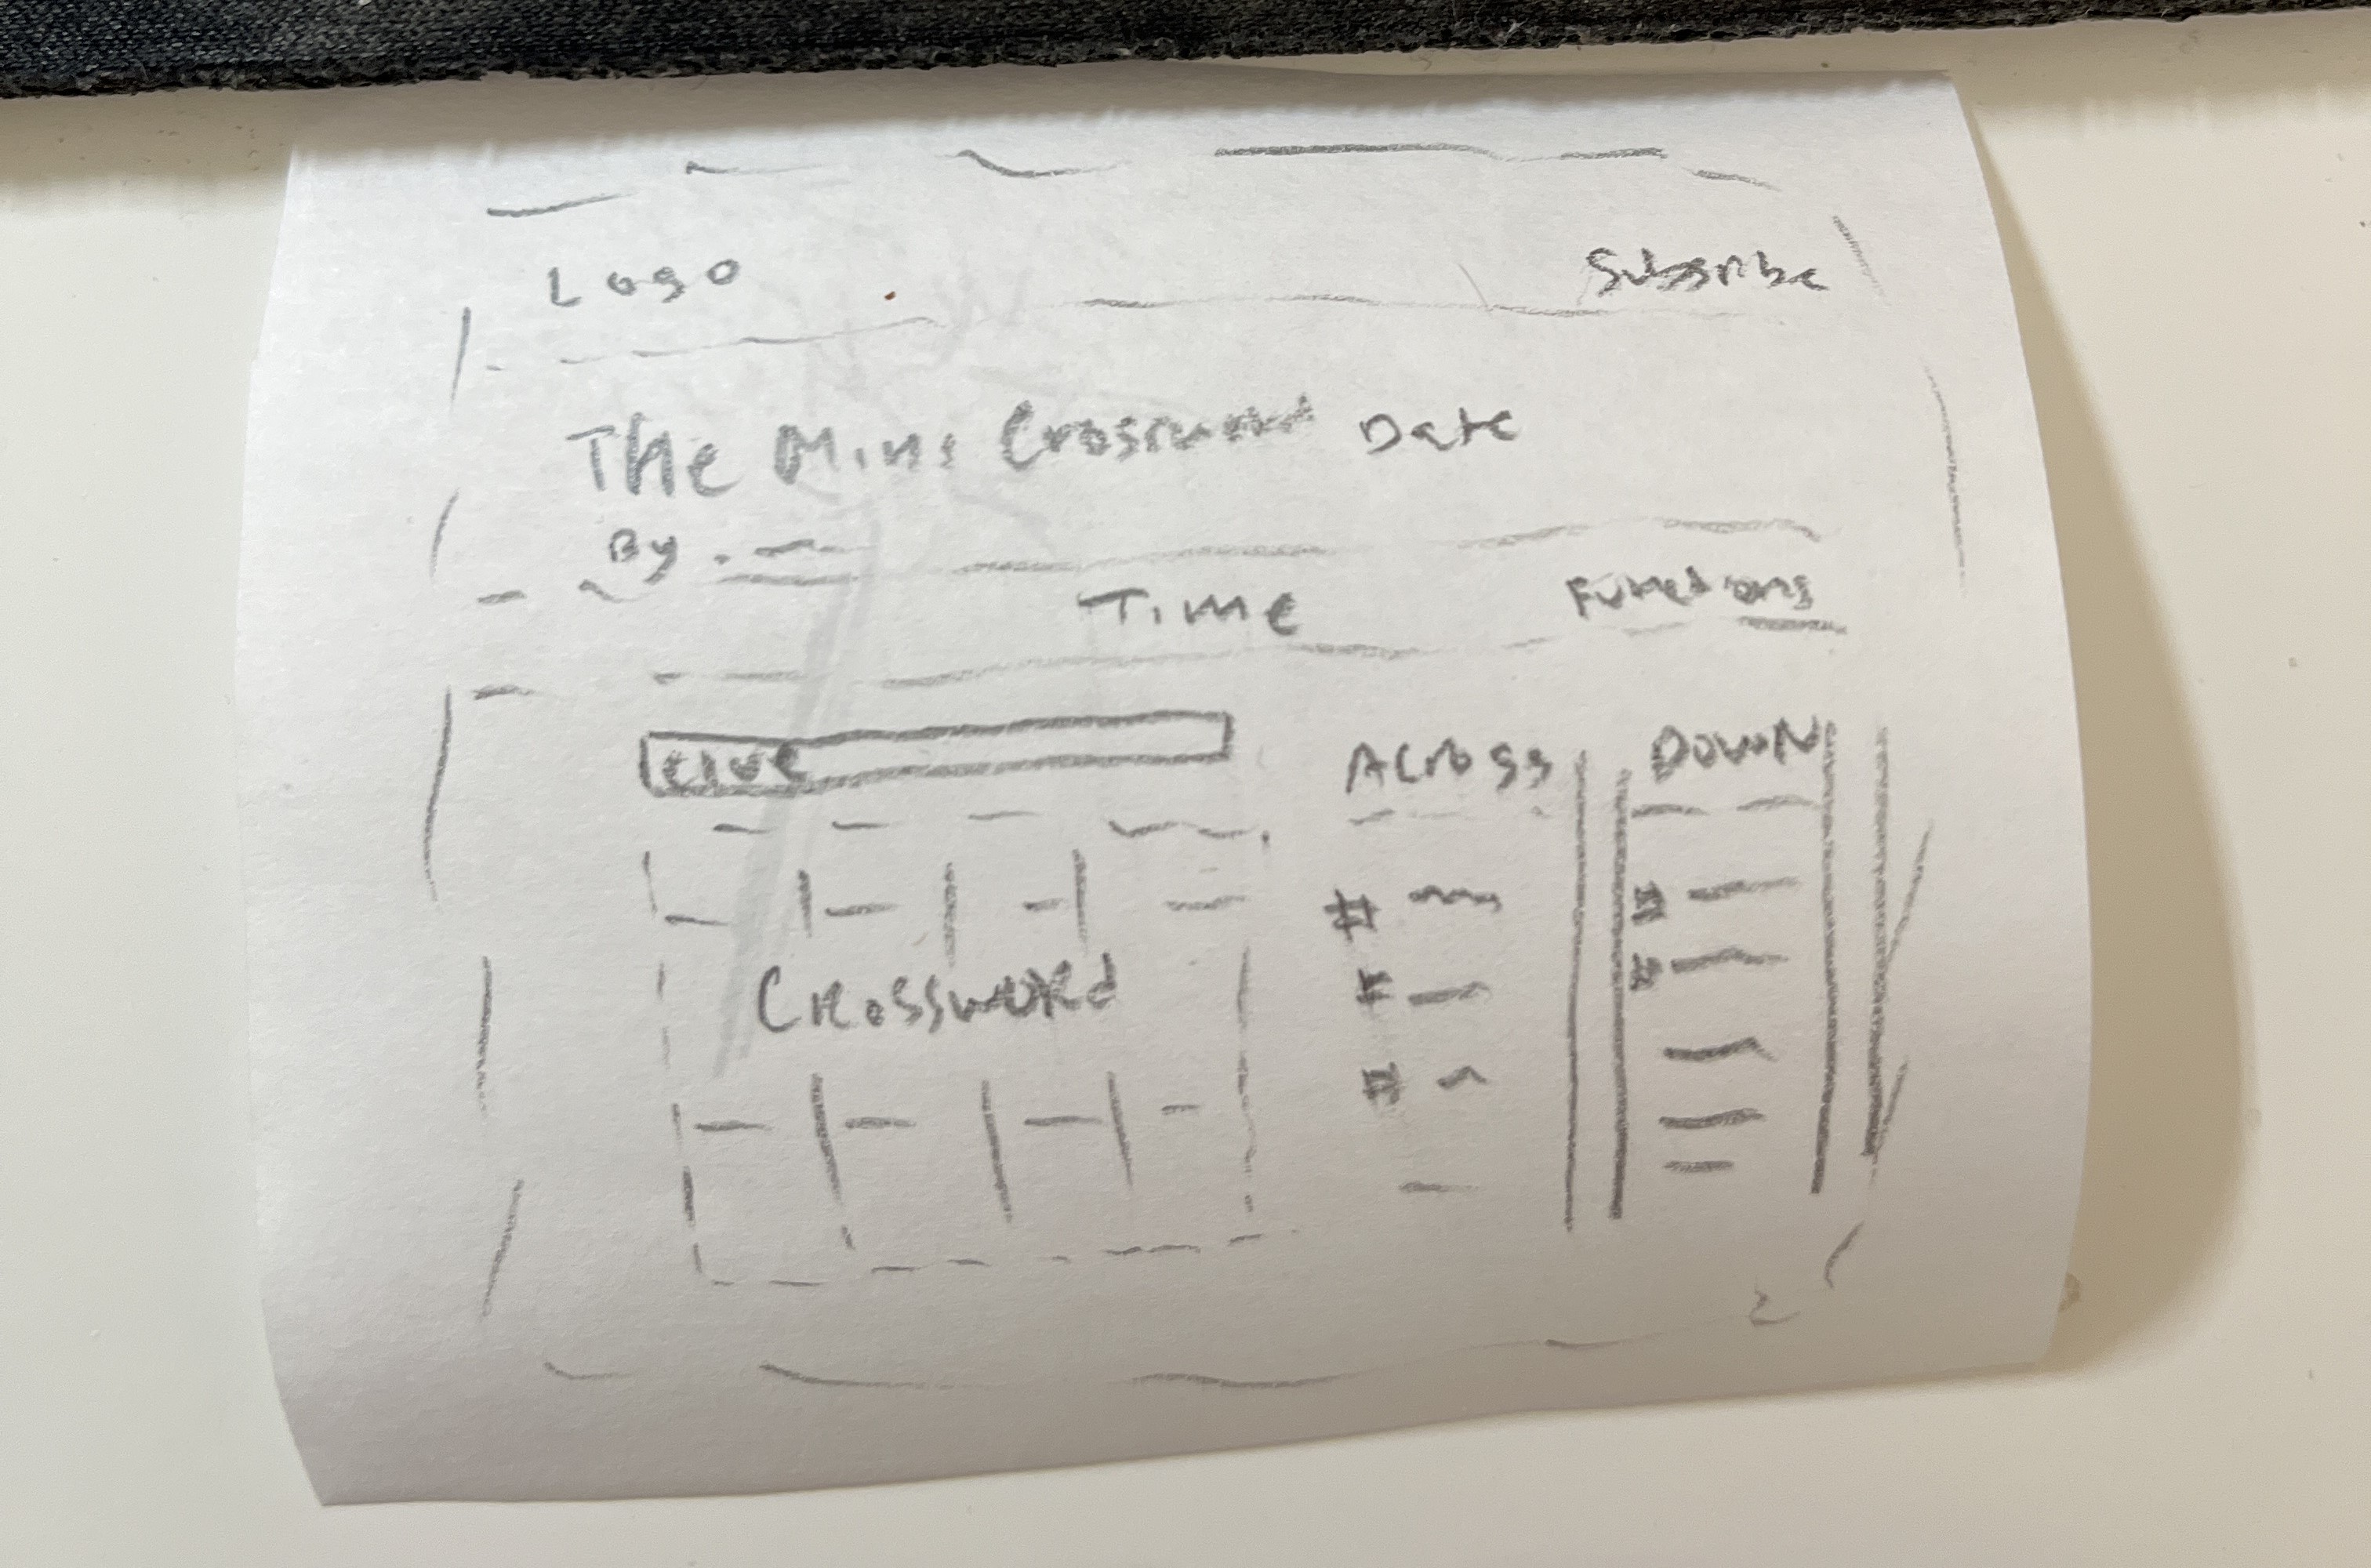 Logo Subsribe
The Mini Crossword Date
By
Time Functions
Clue
Across Down
#
#
#
Crossword